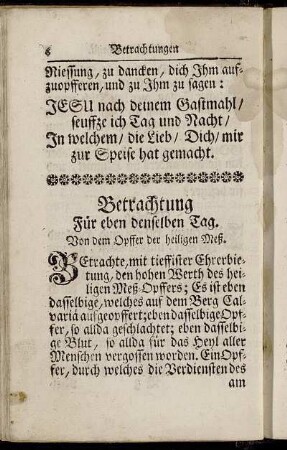 6 Betrachtungen
Niessung, zu dancken, dich Ihm auf-
zuopfferen, und zu Ihm zu sagen:
JESU nach deinem Gastmahl/
seuffze ich Tag und Nacht/
In welchem/ die Lieb/ Dich/ mir
zur Speise hat gemacht.
Betrachtung
Für eben denselben Tag.
Von dem Opffer der heiligen Meß.
BEtrachte, mit tieffister Ehrerbie-
tung, den hohen Werth des hei-
ligen Meß-Opffers; Es ist eben
dasselbige, welches auf dem Berg Cal-
variä aufgeopffert; eben dasselbige Opf-
fer, so allda geschlachtet; eben dasselbi-
ge Blut, so allda für das Heyl aller
Menschen vergossen worden. Ein Opf-
fer, durch welches die Verdiensten des
am